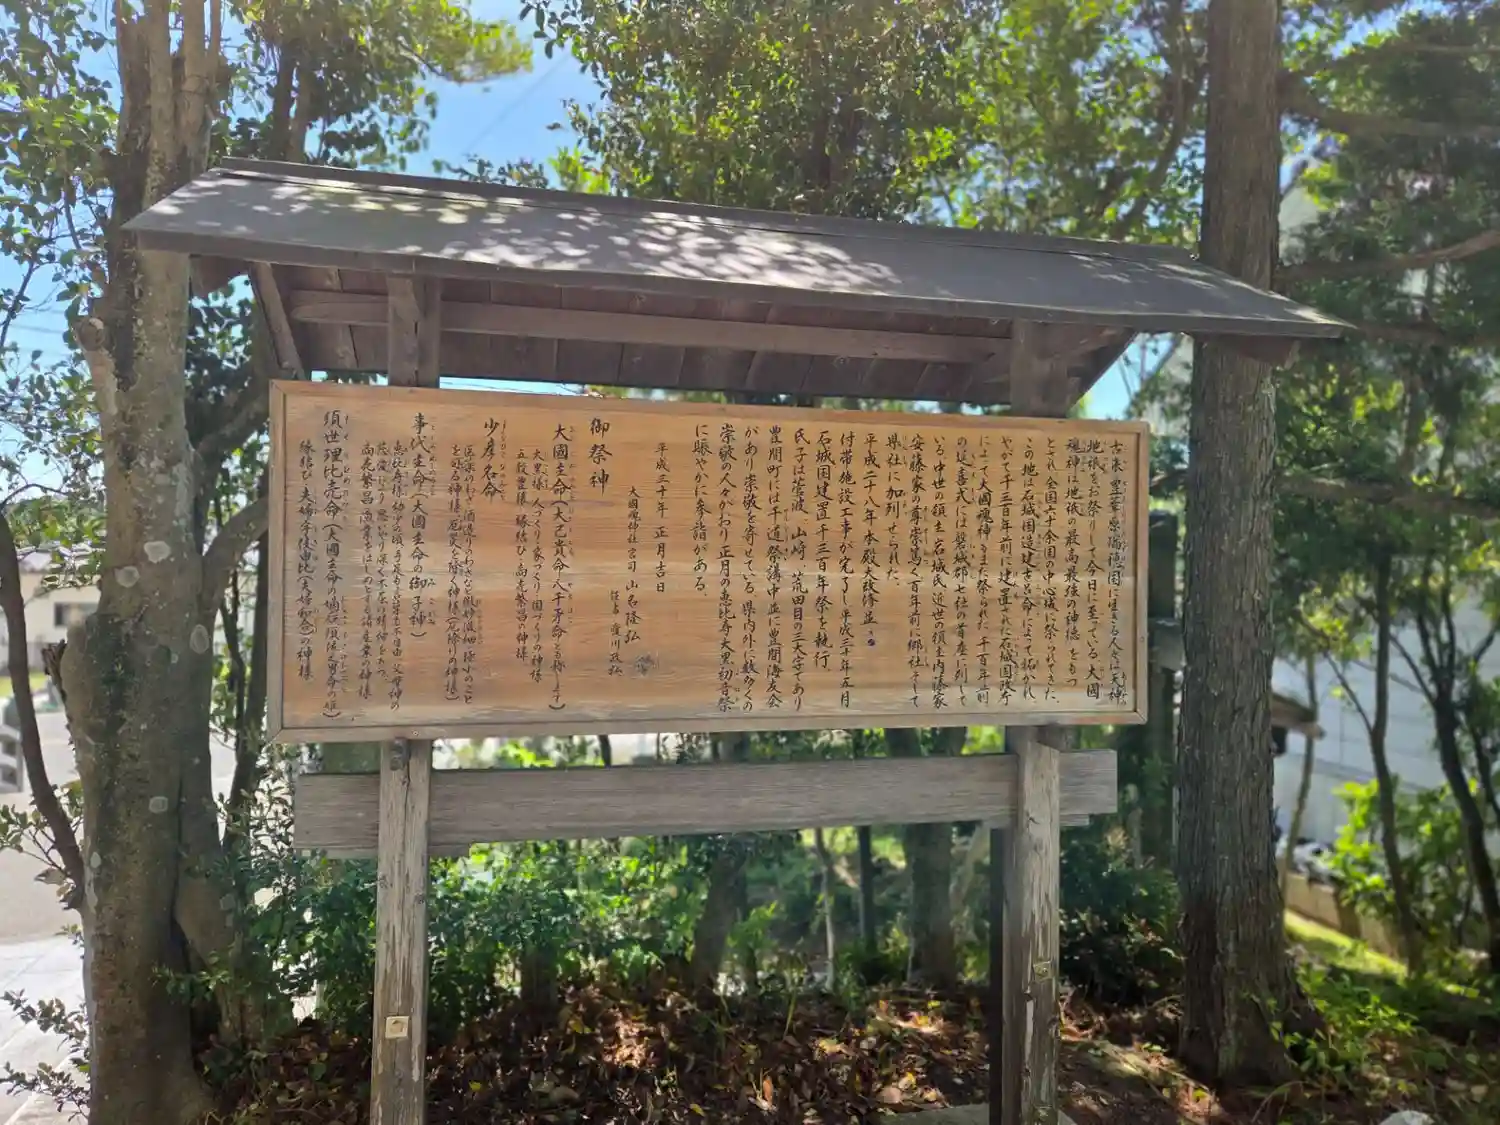 古来、豊葦原瑞穂国に生きる人々は天神
地祇をお祭りして今日に至っている。大國
魂神は地祇の最高最強の神徳をもつ
とされ全国六十余国の中心域に祭られてきた。
この地は石城国造建許呂命によって拓かれ、
やがて千三百年前に建置された石城国政庁
によって大國魂神もまた祭られた。千百年前
の延喜式には磐城郡七社の首座に列して
いる。中世の領主岩城氏、近世の領主内藤家
安藤家の尊崇篤く百年前に郷社そして
県社に加列せられた。
平成二十八年本殿大改修並び
付帯施設工事が完了し平成三十年五月
石城国建置千三百年祭を執行。
氏子は菅波、山崎、荒田目の三大字であり
豊間町には千道祭講中並に豊間海友会
があり崇敬を寄せている。県内外に数多くの
崇敬の人々がおり正月の恵比寿大黒初音祭
に賑やかに参詣がある。
平成三十年 正月吉日
大國魂神社宮司 山名隆弘
御祭神
大國主命(大己貴命・八千矛命とも称します)
大黒様 人づくり・家づくり・国づくりの神様
五穀豊穣・縁結び・高売繁昌の神様
少彦名命
医薬のわざ・酒造りのわざなど
を司る神様 厄災を除く神様(厄除けの神様)
事代主命(大國主命の御子神)
恵比寿様 幼少の頃、手足も言葉も不自由 父母神の
商売繁昌・漁業をはじめとする諸産業の神様
須世理比売命(大國主命の嫡后須佐之男命の姫)
縁結び・夫婦